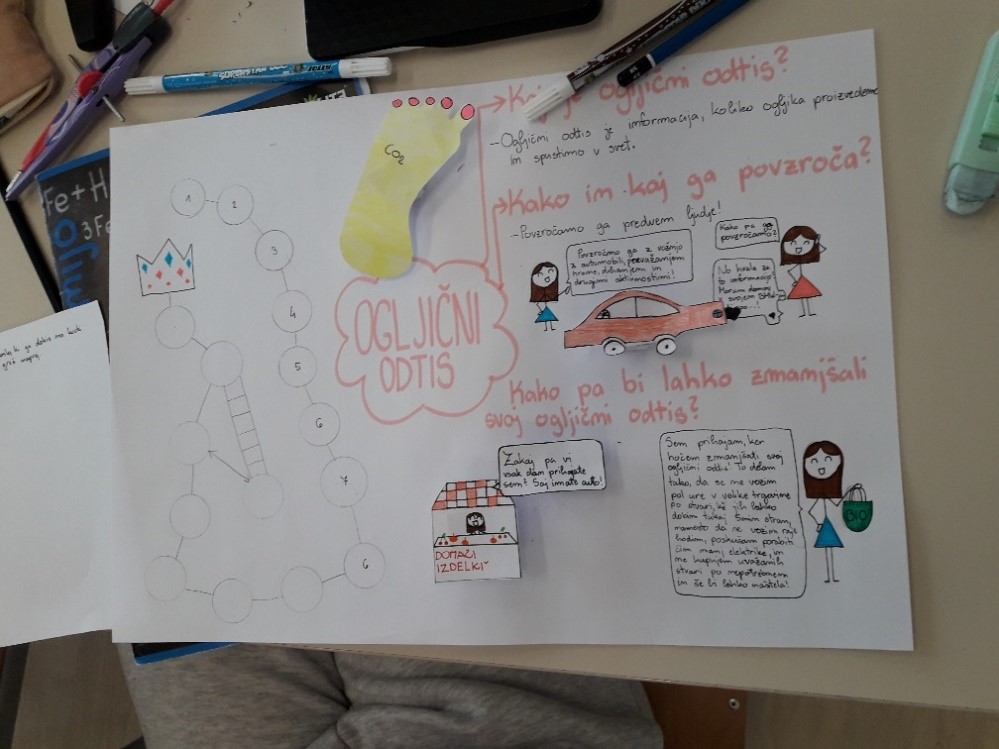 Kaj je ogljični odtis?
-Ogljični odtis je informacija, koliko ogljika proizvedemo
in spustimo v svet.
Kako in kaj ga povzroča?
-Povzročamo ga predvsem ljudje!
Povzročimo ga z vožnjo
z avtomobili, prevažanjem
hrane, dihanjem in
drugimi aktivnostmi!
Kako pa ga
povzročamo?
No hvala za
to informacijo!
Moram domov
s svojem
CO2
OGLJIČNI
ODTIS
Kako pa bi lahko zmanjšali
svoj ogljični odtis?
Zakaj pa vi
vsak dan prihajate
sem? Saj imate avto!
DOMAČI
IZDELKI
Sem prihajam, ker
hočem zmanjšati svoj
ogljični odtis! To delam
tako, da se ne vozim
pol ure v velike trgovine
po stvari, ki jih lahko
dobim tukaj 5min stran,
namesto da se vozim raje
hodim, poskušam porabiti
čim manj elektrike, in
ne kupujem uvoženih
stvari po nepotrebnem
in še bi lahko naštela!
BIO
1
2
3
4
5
6
7
6
Fe + H
3Fe